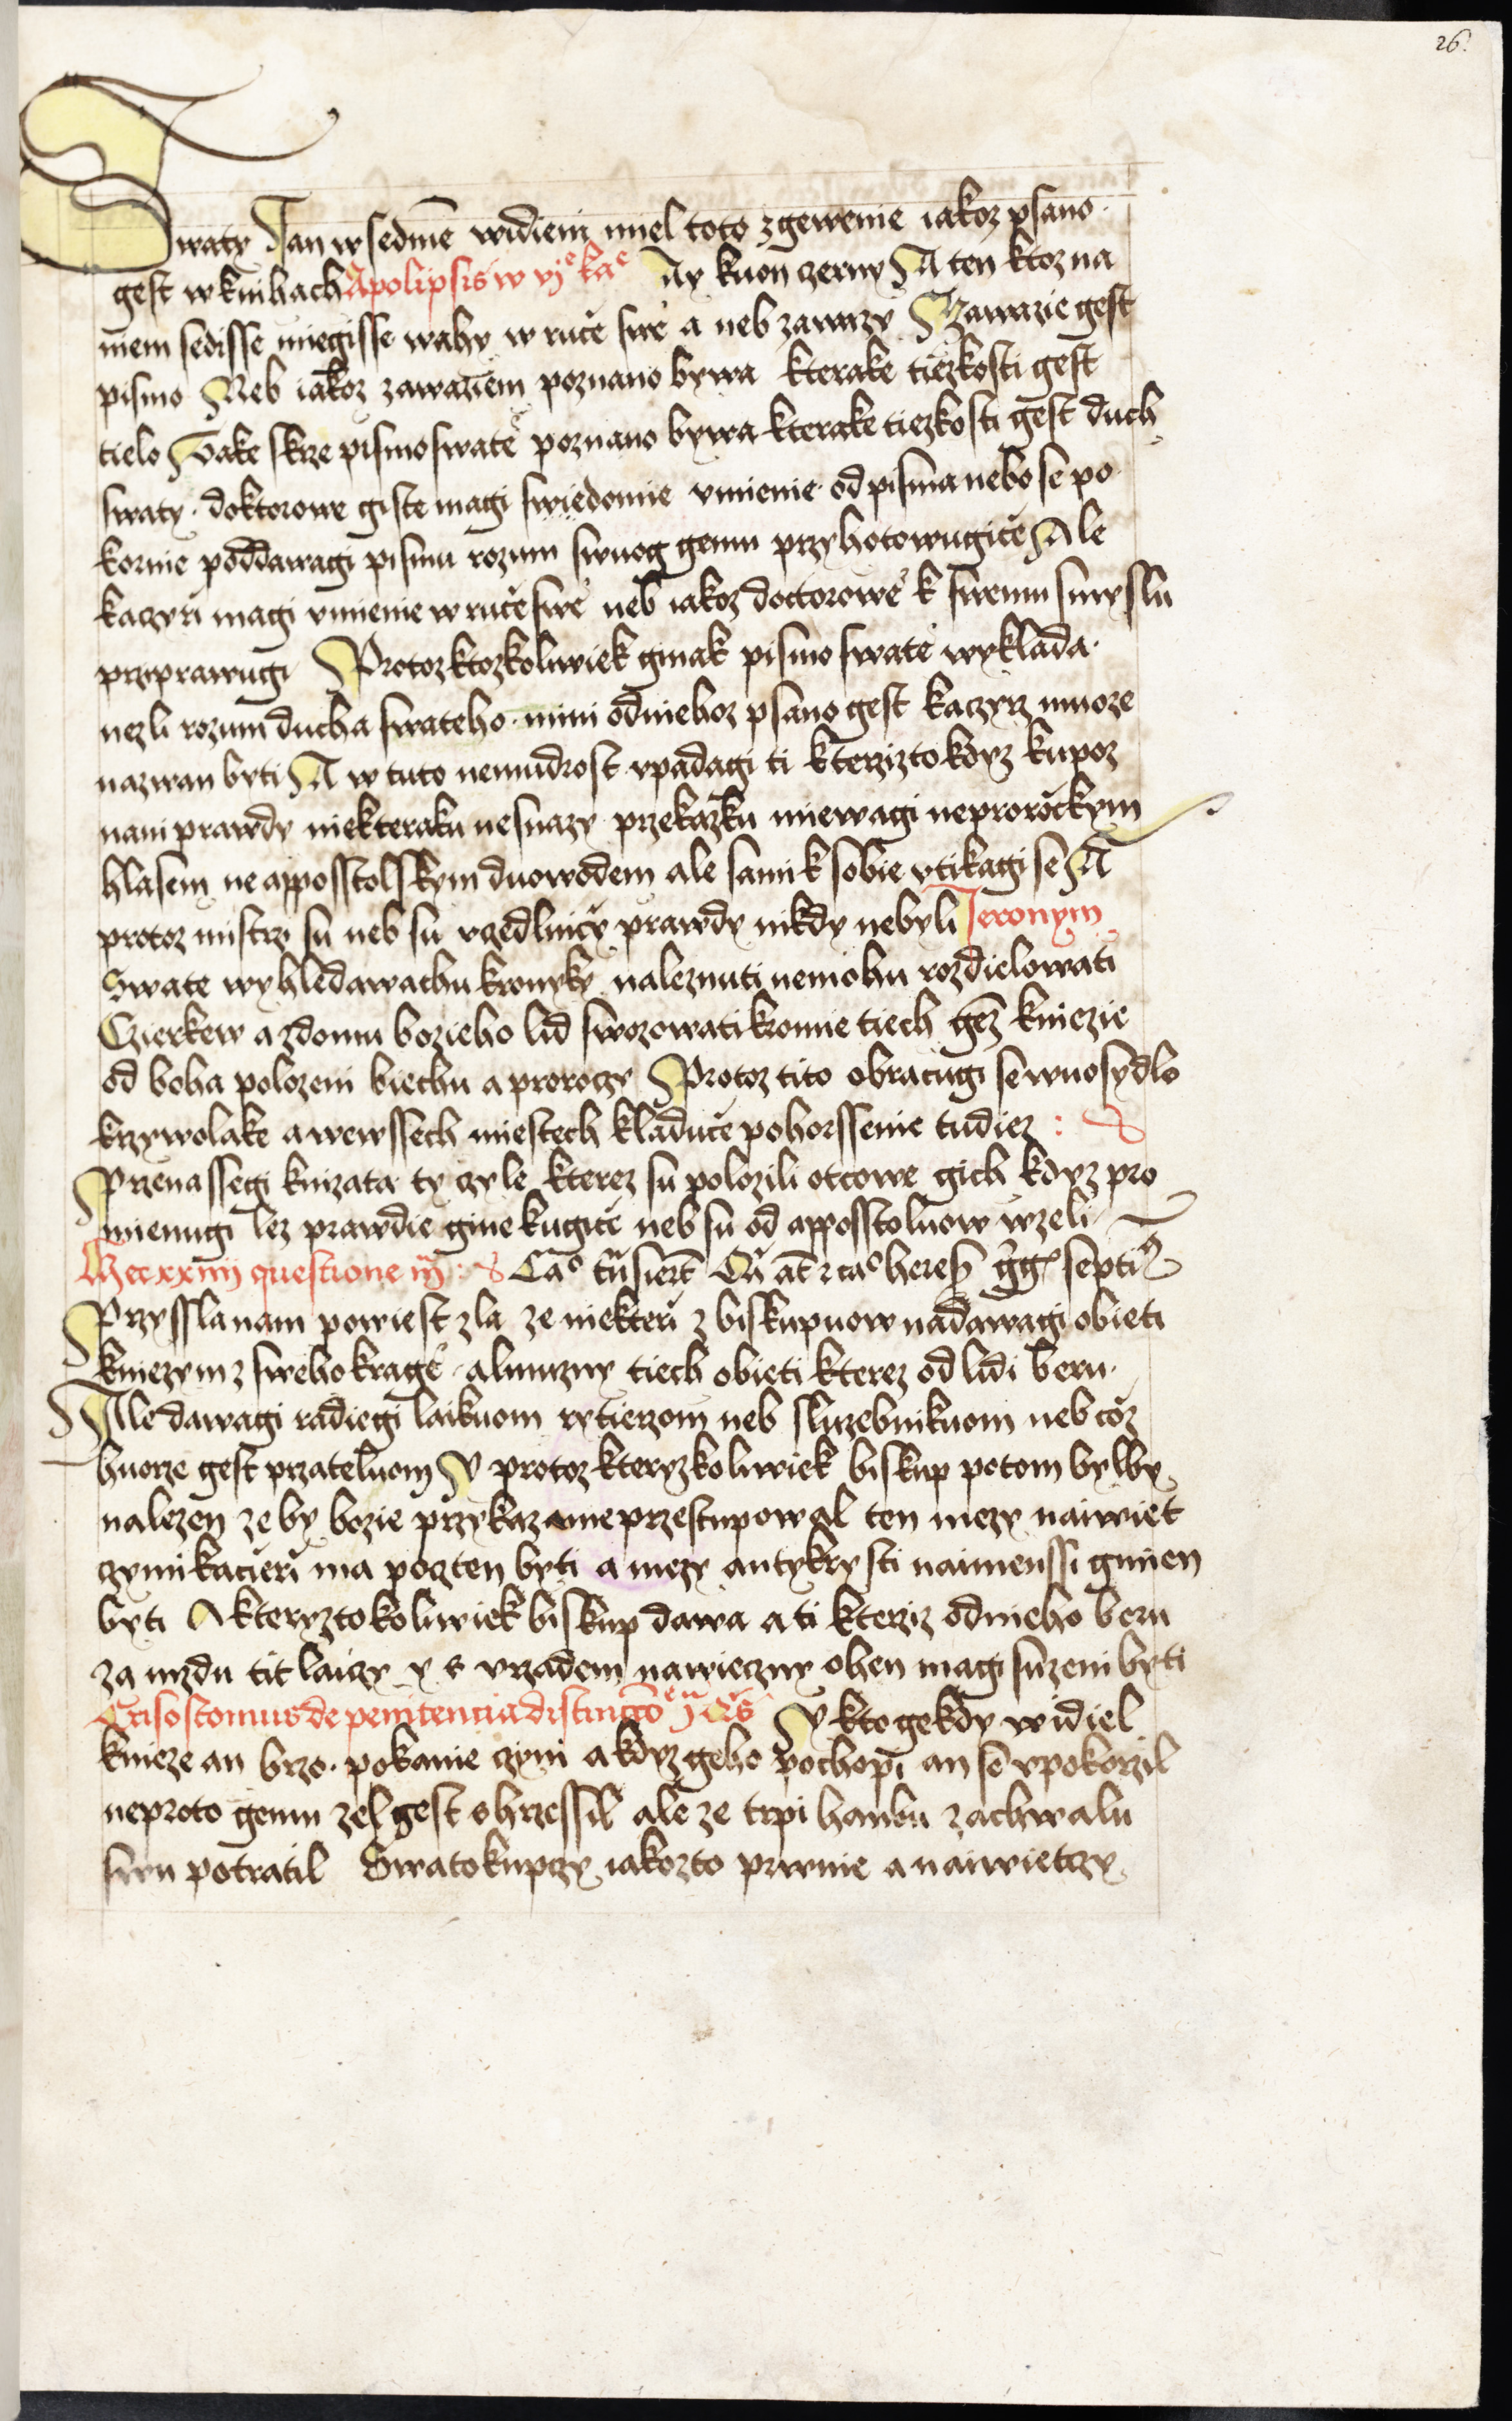 26.
Swaty Jan w sedmē widieni miel toto zgewenie iakoz psano
gest w knihach Apolipsis w vj ka Ay kuon czerny A ten ktoz na
niem sedisse miegisse wahy w ruce swe a neb zawazy Zawazie gest
pismo Neb iakoz zawaziem poznano bywa kterake tiezkosti gest
tielo Take skrze pismo swate poznano bywa kterake tiezkosti gest duch
swaty doktorowe giste magi swiedomie vmienie od pisma nebo se po
kornie poddawagi pismu rozum swuog gemu przyhotowugice Ale
kaczyri magi vmienie w ruce swe neb iakoz doctorowe k swemu smyslu
przprawugi Protoz ktozkoliwiek ginak pismo swate wyklada
nezli rozum ducha swateho mini odniehoz psano gest kaczyrz muoze
nazwan byti A w tuto nemudrost vpadagi ti kterizto kdyz kupoz
nani prawdy niekteraku nesnazy przekazku miewagi neprorockym
hlasem ne apposstolskym duowodem ale sami k sobie vtikagi se A
protoz mistrzi su neb su vgedlnicy prawdy nikdy nebyli Jeronym
Swate wyhledawachu kronyky naleznuti nemohu rozdielowati
Czierkew a zdomu bozieho lid swozowati kromie tiech gēz kniezie
od boha polozeni biechu a prorocy Protoz tito obracugi se wuosydlo
krzywolake a wewssech miestech kladuce pohorssenie tudiez :
Przenassegi knizata ty cyle kterez su polozili otcowe gich kdyz pro
mienugi lez prawdie gine kugice neb su od apposstoluow wzeli
We xxiiij questione iij Ca heresis gg septi
Przyssla nam powiest zla ze niekteri z biskupuow nadawagi obieti
kniezym z sweho krage almuzny tiech obieti kterez od lidi beru
Ale dawagi radiegi laikuom rytierzom neb sluzebnikuom neb coz
huorze gest przateluom Y protoz kteryzkoliwiek biskup potom bylby
nalezen ze by bozie przykazanie przestupowal ten mezy naiwiet
czymi kacieri ma pocten byti a mezy antykrysti naimenssi gmien
byti A kteryztokoliwiek biskup dawa a ti kteriz odnieho beru
za mzdu tit laicy y s vrzadem nawieczny ohen magi suzeni byti
Crisostomus de penitencia distinctio Y kto gekdy widiel
knieze an brzo pokanie czyni a kdyz geho pochopi an se vpokorzil
neproto gemu zel gest shrzessil ale ze trpi hanbu zachwalu
swu potratil Swatokupczy iakozto prwnie a naiwietczy